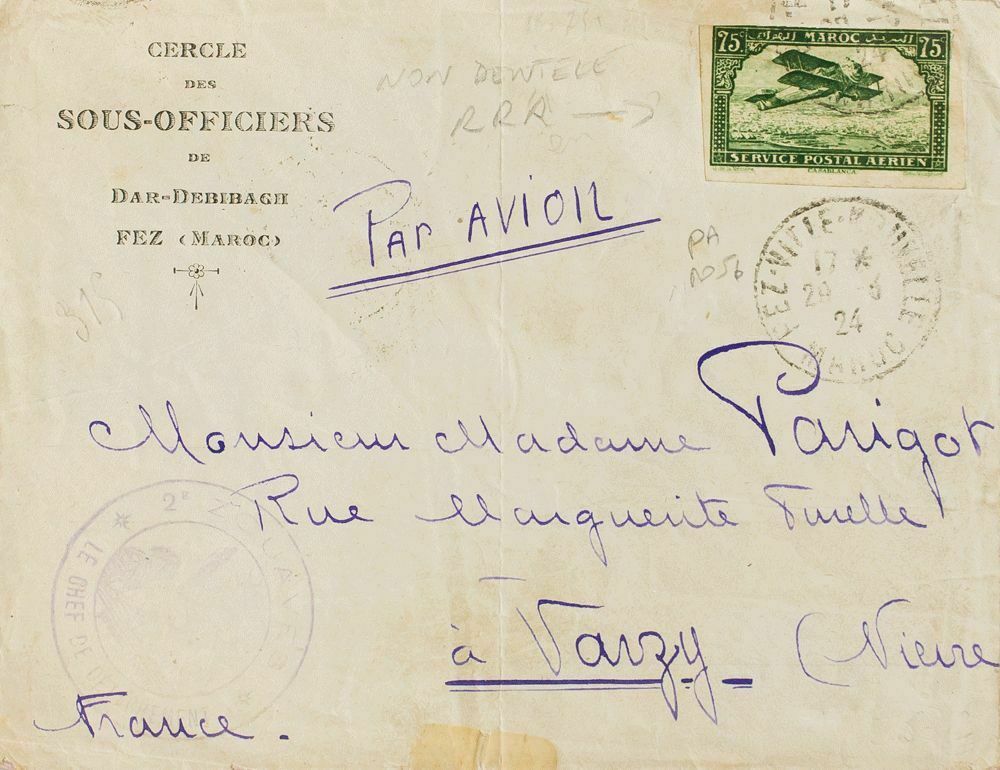 CERCLE
DES
SOUS-OFFICIERS
DE
DAR-DEBIBAGH
FEZ (MAROC)
NON DENTELE
RRR
75c MAROC البريد الهوائي 75c
SERVICE POSTAL AÉRIEN
CASABLANCA
Par AVION
PA
FEZ-VILLE-NOUVELLE
17 *
29 - 3
24
MAROC
315
Monsieur Madame Parigot
Rue Marguerite
à Varzy (Nievre
France.
* 2e ZOUAVES *
LE CHEF DE